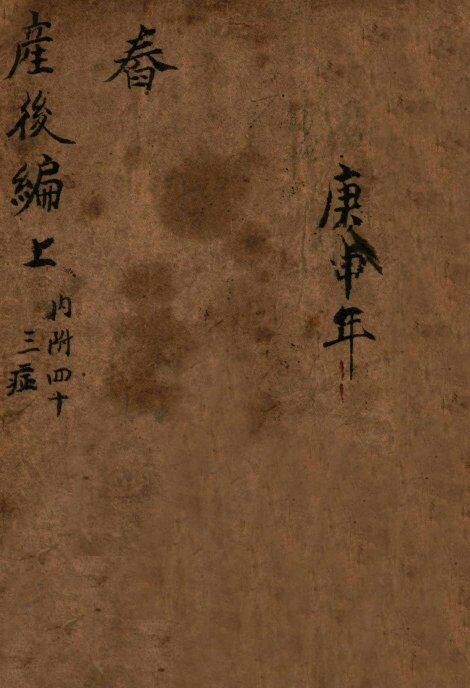 庚申年
春
產後編上
內附四十
三症